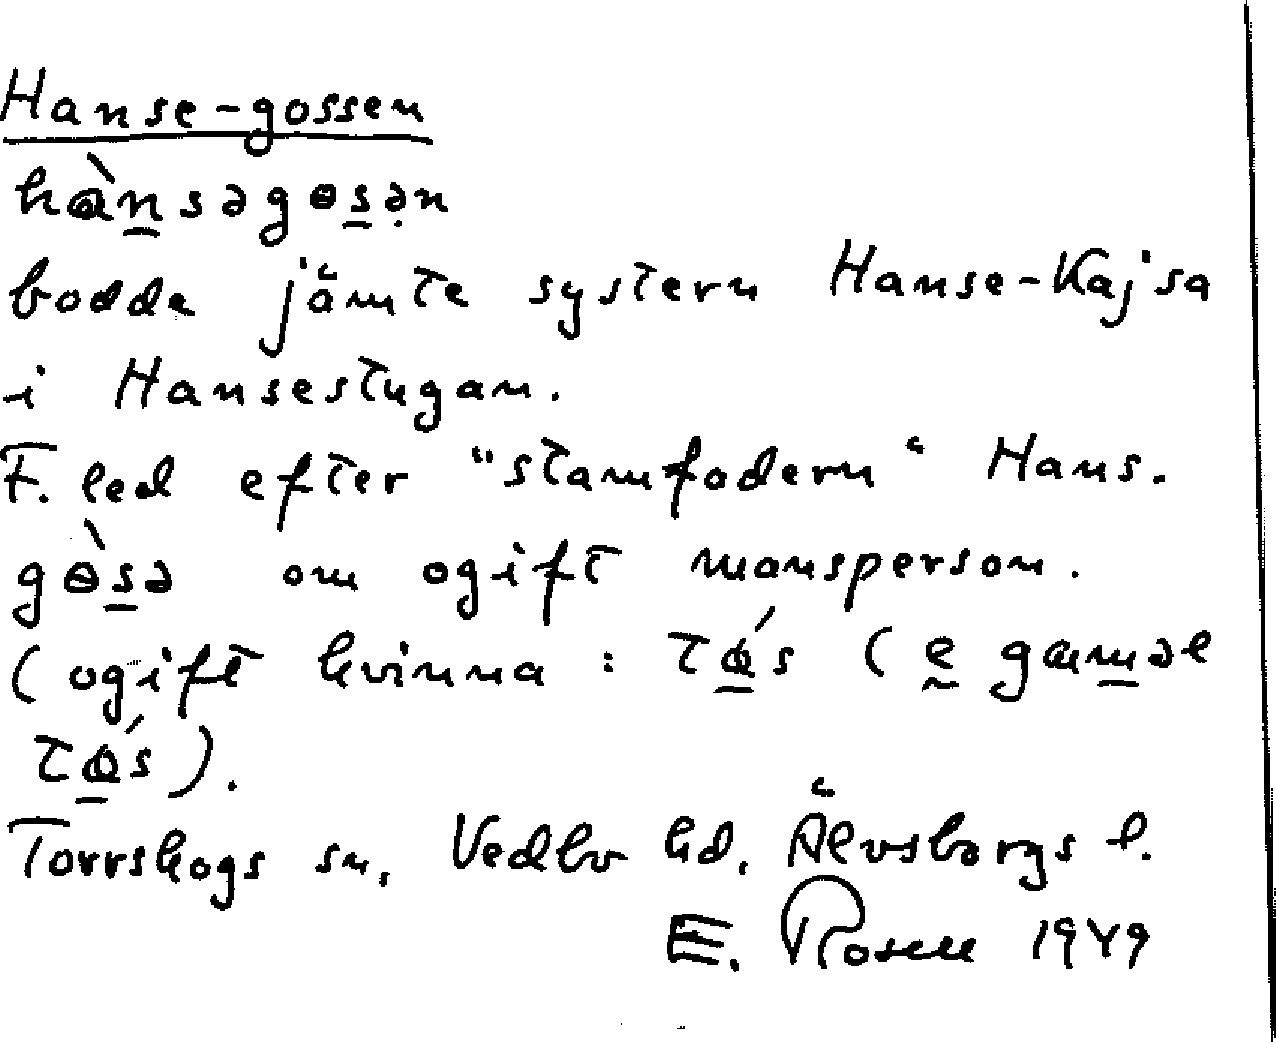 Hanse-gossen
hàn̲səgɵs̲ə̣n
bodde jämte systern Hanse-Kajsa
i Hansestugan.
F. led efter "stamfadern" Hans.
gɵ̀s̲ə om ogift mansperson.
(ogift kvinna: tɵ̲́s (e̲ gam̲əl
tɵ̲́s).
Torrskogs sn, Vedbo hd, Älvsborgs l.
E. Rosell 1949